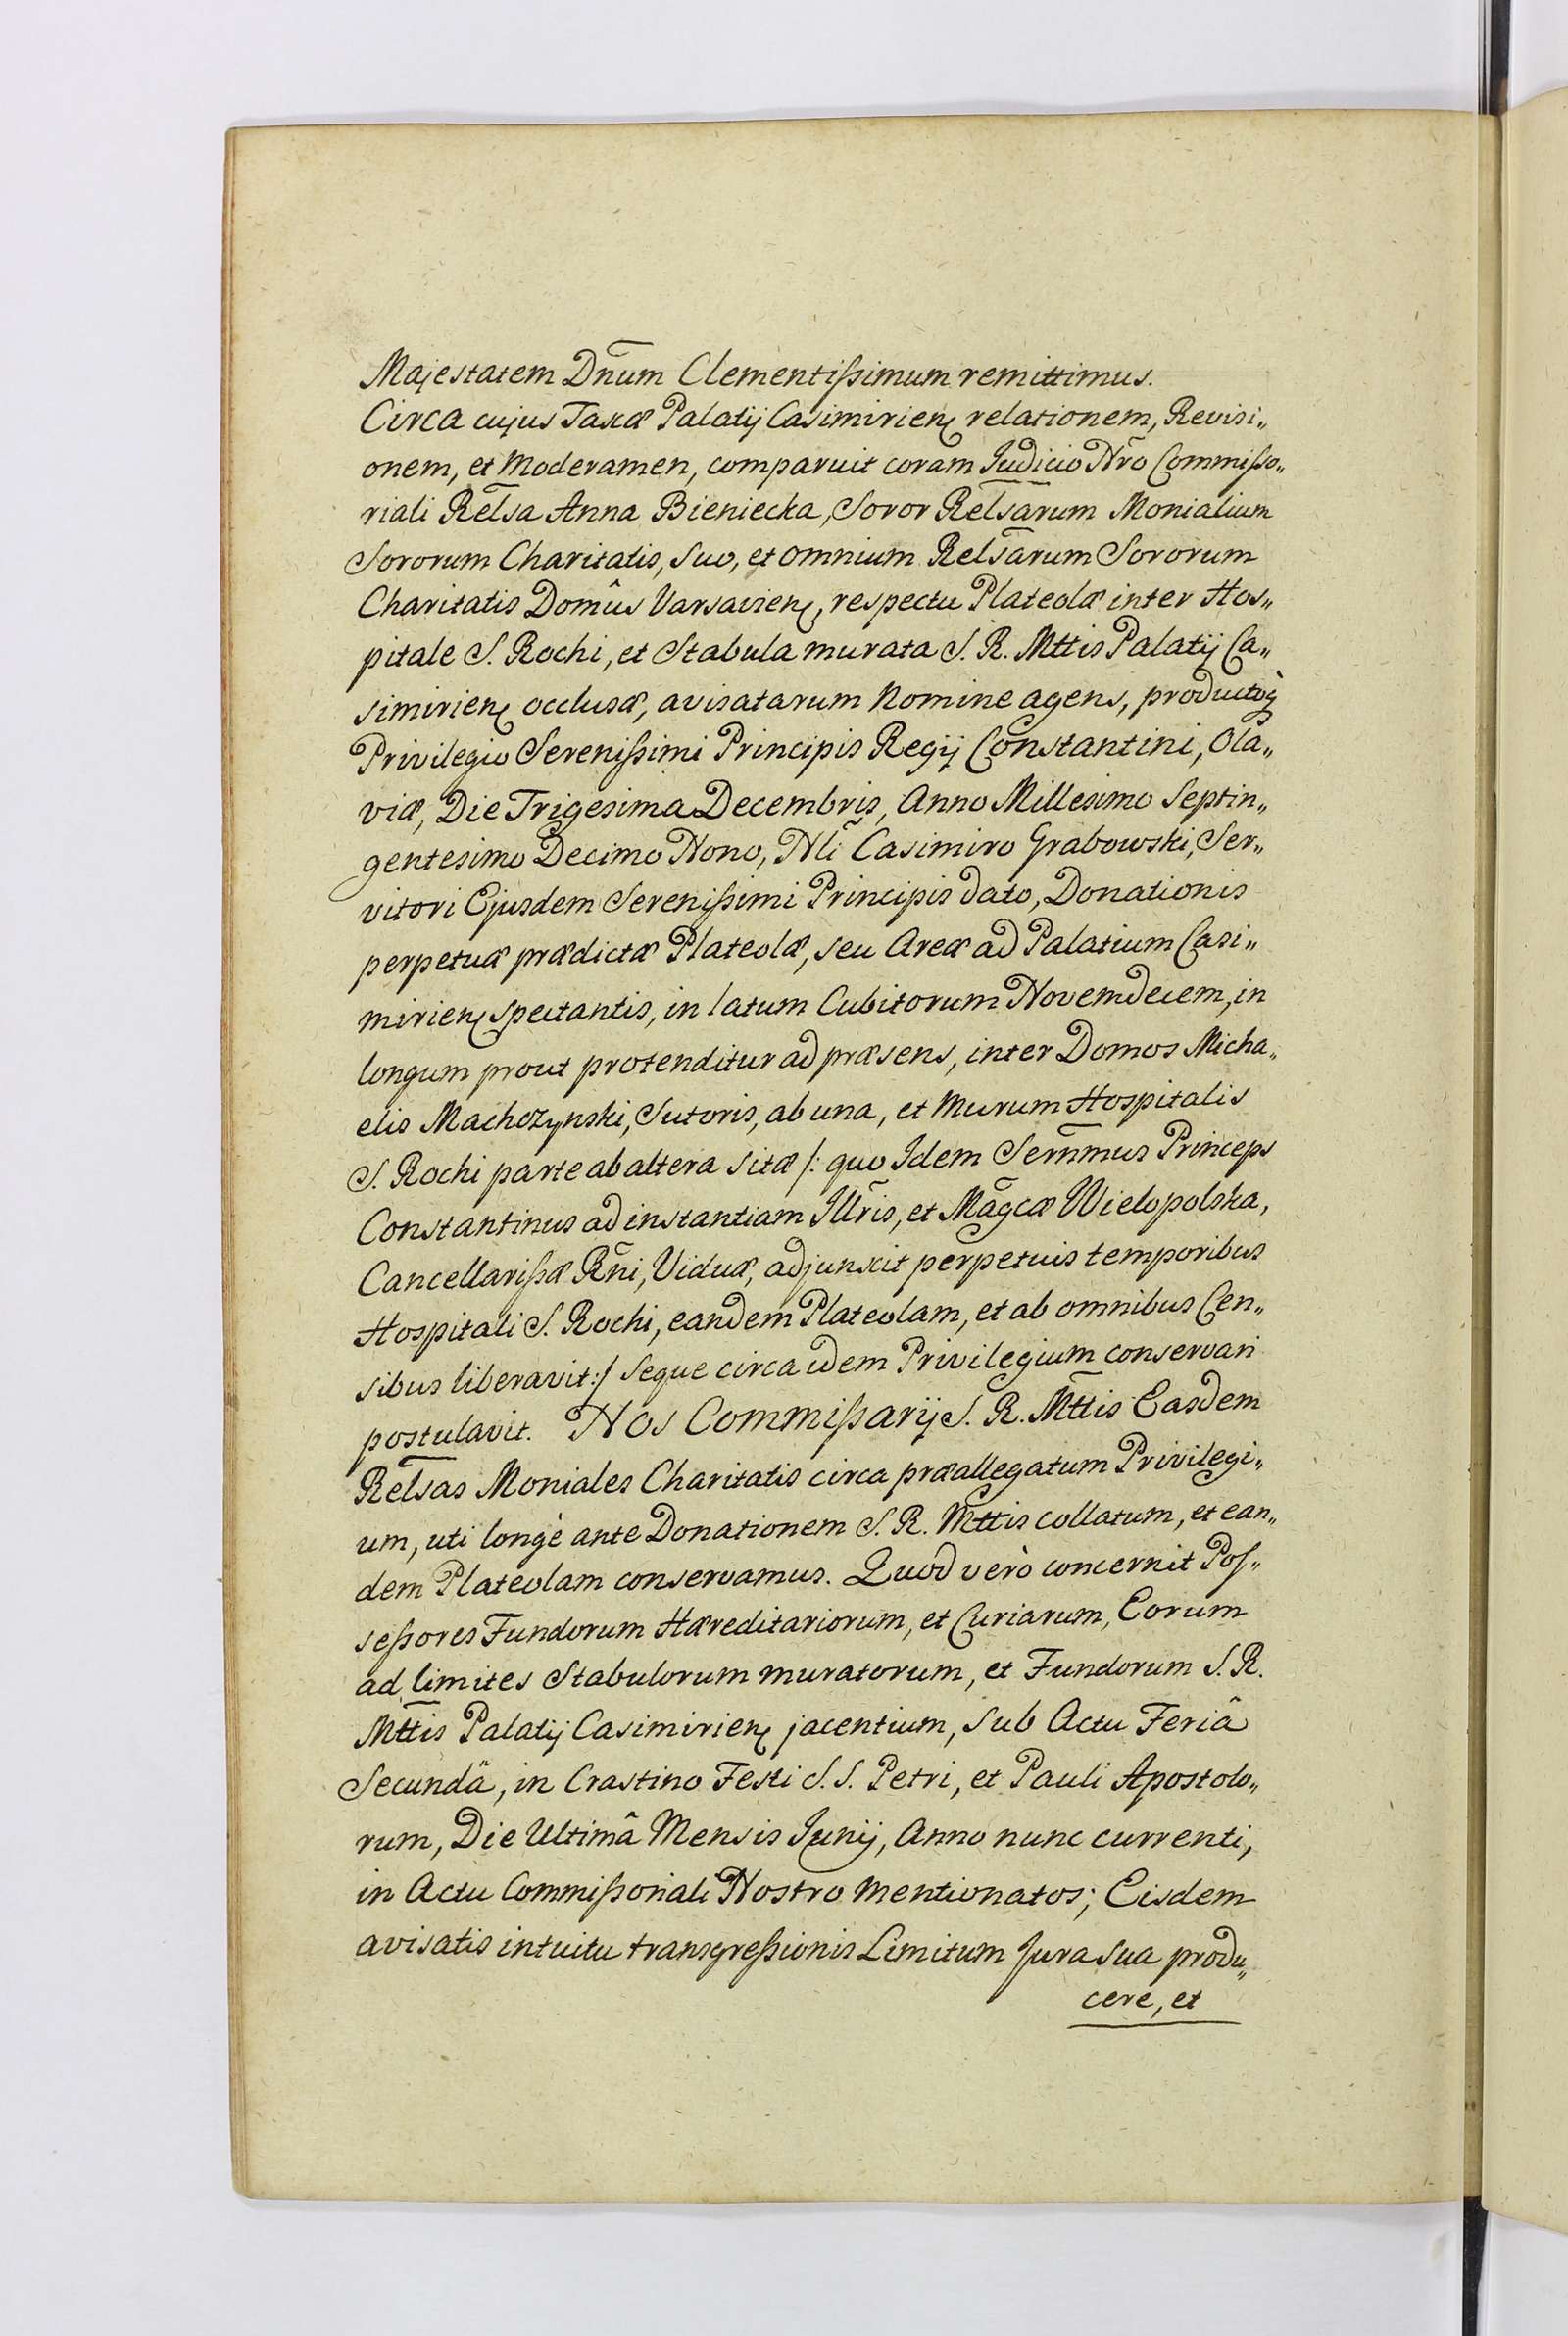 Majestatem Dnum Clementissimum remittimus.
Circa cujus Taxæ Palatij Casimirien relationem, Revisi„
onem, et Moderamen, comparuit coram Judicio Nro Commisso„
riali Relsa Anna Bieniecka, Soror Relsarum Monialium
Sororum Charitatis, suo, et omnium Relsarum Sororum
Charitatis Domûs Varsavien, respectu Plateolæ inter Hos„
pitale S. Rochi, et Stabula murata S. R. Mttis Palatij Ca„
simirien occlusæ, avisatarum Nomine agens, productoq
Privilegio Serenissimi Principis Regij Constantini, Ola„
viæ, Die Trigesima Decembris, Anno Millesimo Septin„
gentesimo Decimo Nono, Nli Casimiro Grabowski, Ser„
vitori Ejusdem Serenissimi Principis dato, Donationis
perpetuæ prædictæ Plateolæ, seu Areæ ad Palatium Casi„
mirien spectantis, in latum Cubitorum Novemdecem, in
longum prout protenditur ad præsens, inter Domos Micha„
elis Machczynski, Sutoris, ab una, et Murum Hospitalis
S. Rochi parte ab altera sitæ /: quo Idem Sernmus Princeps
Constantinus ad instantiam Illris, et Magcæ Wielopolska,
Cancellarissæ Rni, Viduæ, adjunxit perpetuis temporibus
Hospitali S. Rochi, eandem Plateolam, et ab omnibus Cen„
sibus liberavit:/ seque circa idem Privilegium conservari
postulavit. Nos Commissarij S. R. Mttis Easdem
Relsas Moniales Charitatis circa præallegatum Privilegi„
um, uti longè ante Donationem S. R. Mttis collatum, et ean„
dem Plateolam conservamus. Quod verò concernit Pos„
sessores Fundorum Hæreditariorum, et Curiarum, Eorum
ad limites Stabulorum muratorum, et Fundorum S. R.
Mttis Palatij Casimirien jacentium, sub Actu Feriâ
Secundâ, in Crastino Festi S. S. Petri, et Pauli Apostolo„
rum, Die Ultimâ Mensis Junij, Anno nunc currenti,
in Actu Commissoriali Nostro mentionatos; Eisdem
avisatis intuitu transgressionis Limitum Jura sua produ„
cere, et